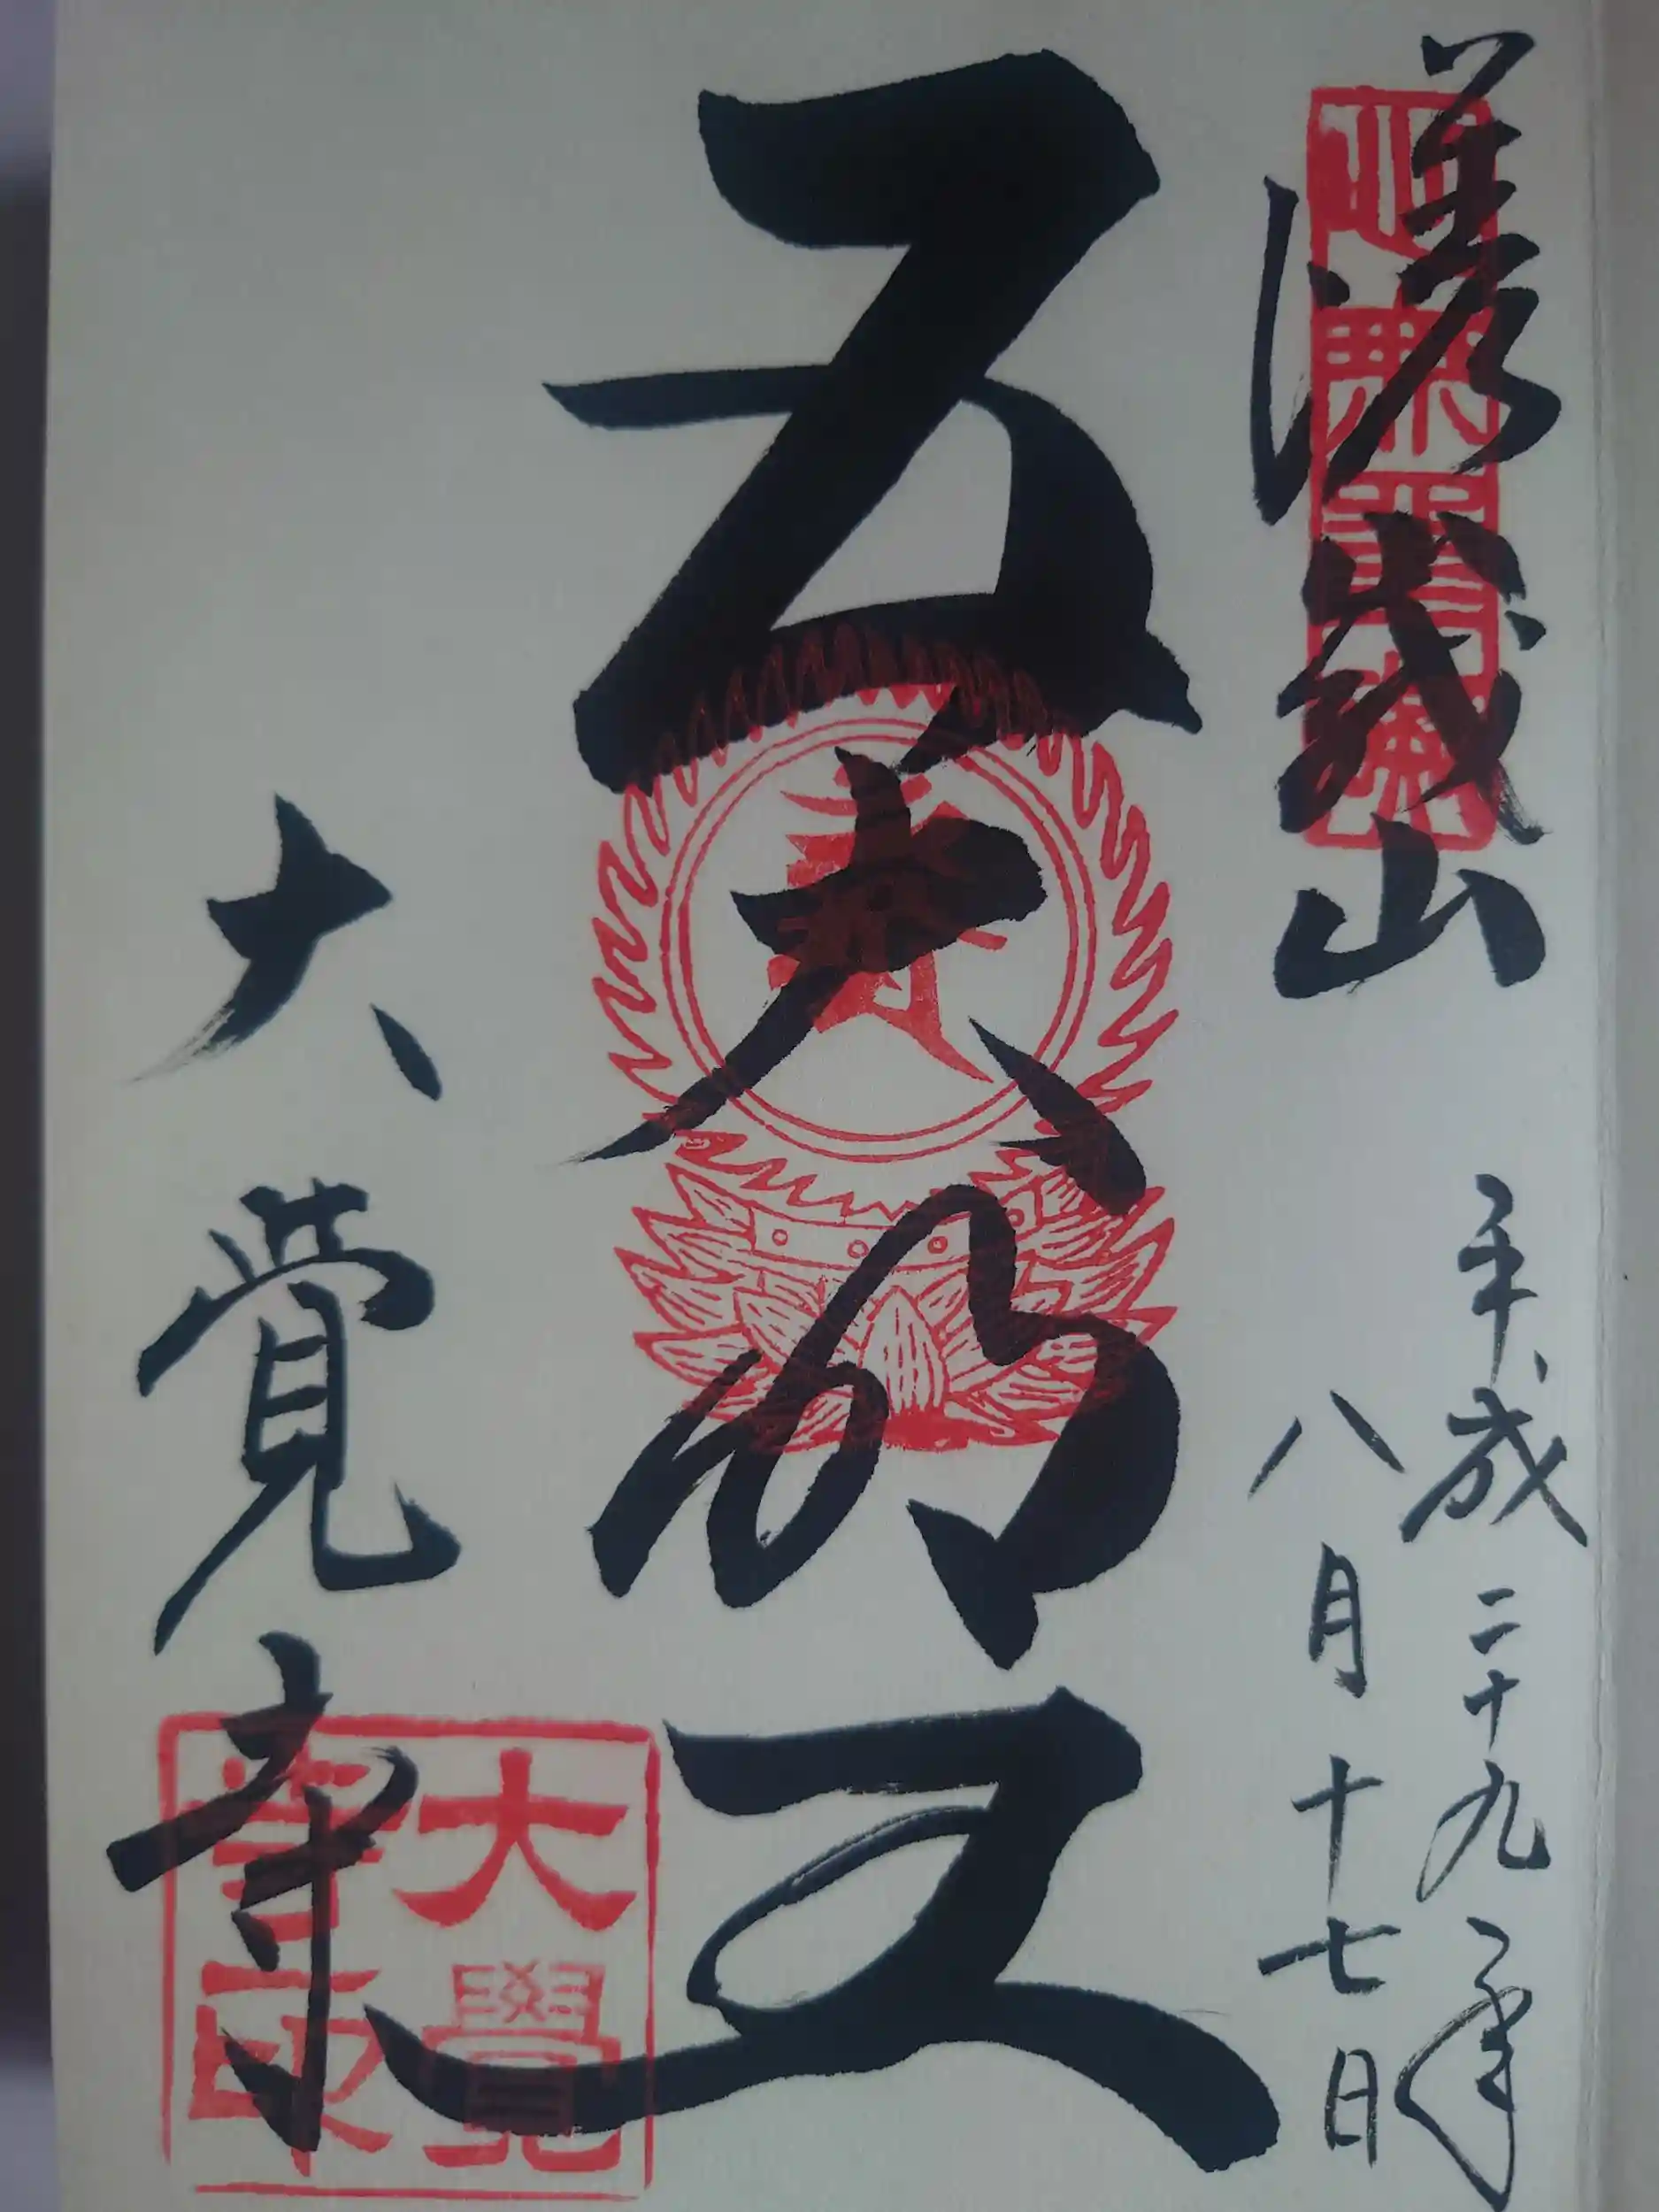 嵯峨山
心無罣礙
平成二十九年
八月十七日
五大明王
大覚寺
大覺寺印